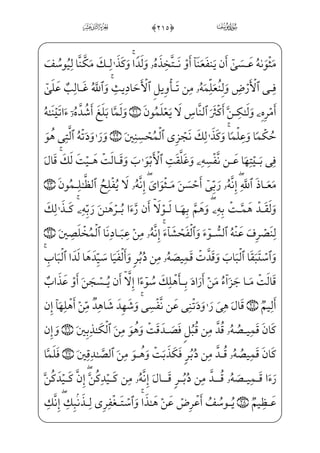 سُورَةُ يُوسُفَ ﴿٢١٥﴾ الجُزْءُ الثَّانِي عَشَرَ
مَثْوَىٰهُ عَسَىٰٓ أَن يَنفَعَنَآ أَوْ نَتَّخِذَهُۥ وَلَدًا ۚ وَكَذَٰلِكَ مَكَّنَّا لِيُوسُفَ
فِى ٱلْأَرْضِ وَلِنُعَلِّمَهُۥ مِن تَأْوِيلِ ٱلْأَحَادِيثِ ۚ وَٱللَّهُ غَالِبٌ عَلَىٰٓ
أَمْرِهِۦ وَلَٰكِنَّ أَكْثَرَ ٱلنَّاسِ لَا يَعْلَمُونَ ٢١ وَلَمَّا بَلَغَ أَشُدَّهُۥٓ ءَاتَيْنَٰهُ
حُكْمًا وَعِلْمًا ۚ وَكَذَٰلِكَ نَجْزِى ٱلْمُحْسِنِينَ ٢٢ وَرَٰوَدَتْهُ ٱلَّتِى هُوَ
فِى بَيْتِهَا عَن نَّفْسِهِۦ وَغَلَّقَتِ ٱلْأَبْوَٰبَ وَقَالَتْ هَيْتَ لَكَ ۚ قَالَ
مَعَاذَ ٱللَّهِ ۖ إِنَّهُۥ رَبِّىٓ أَحْسَنَ مَثْوَاىَ ۖ إِنَّهُۥ لَا يُفْلِحُ ٱلظَّٰلِمُونَ ٢٣
وَلَقَدْ هَمَّتْ بِهِۦ ۖ وَهَمَّ بِهَا لَوْلَآ أَن رَّءَا بُرْهَٰنَ رَبِّهِۦ ۚ كَذَٰلِكَ
لِنَصْرِفَ عَنْهُ ٱلسُّوٓءَ وَٱلْفَحْشَآءَ ۚ إِنَّهُۥ مِنْ عِبَادِنَا ٱلْمُخْلَصِينَ ٢٤
وَٱسْتَبَقَا ٱلْبَابَ وَقَدَّتْ قَمِيصَهُۥ مِن دُبُرٍ وَأَلْفَيَا سَيِّدَهَا لَدَا ٱلْبَابِ ۚ
قَالَتْ مَا جَزَآءُ مَنْ أَرَادَ بِأَهْلِكَ سُوٓءًا إِلَّآ أَن يُسْجَنَ أَوْ عَذَابٌ
أَلِيمٌ ٢٥ قَالَ هِىَ رَٰوَدَتْنِى عَن نَّفْسِى ۚ وَشَهِدَ شَاهِدٌ مِّنْ أَهْلِهَآ إِن
كَانَ قَمِيصُهُۥ قُدَّ مِن قُبُلٍ فَصَدَقَتْ وَهُوَ مِنَ ٱلْكَٰذِبِينَ ٢٦ وَإِن
كَانَ قَمِيصُهُۥ قُدَّ مِن دُبُرٍ فَكَذَبَتْ وَهُوَ مِنَ ٱلصَّٰدِقِينَ ٢٧ فَلَمَّا
رَءَا قَمِيصَهُۥ قُدَّ مِن دُبُرٍ قَالَ إِنَّهُۥ مِن كَيْدِكُنَّ ۖ إِنَّ كَيْدَكُنَّ
عَظِيمٌ ٢٨ يُوسُفُ أَعْرِضْ عَنْ هَٰذَا ۚ وَٱسْتَغْفِرِى لِذَنۢبِكِ ۖ إِنَّكِ